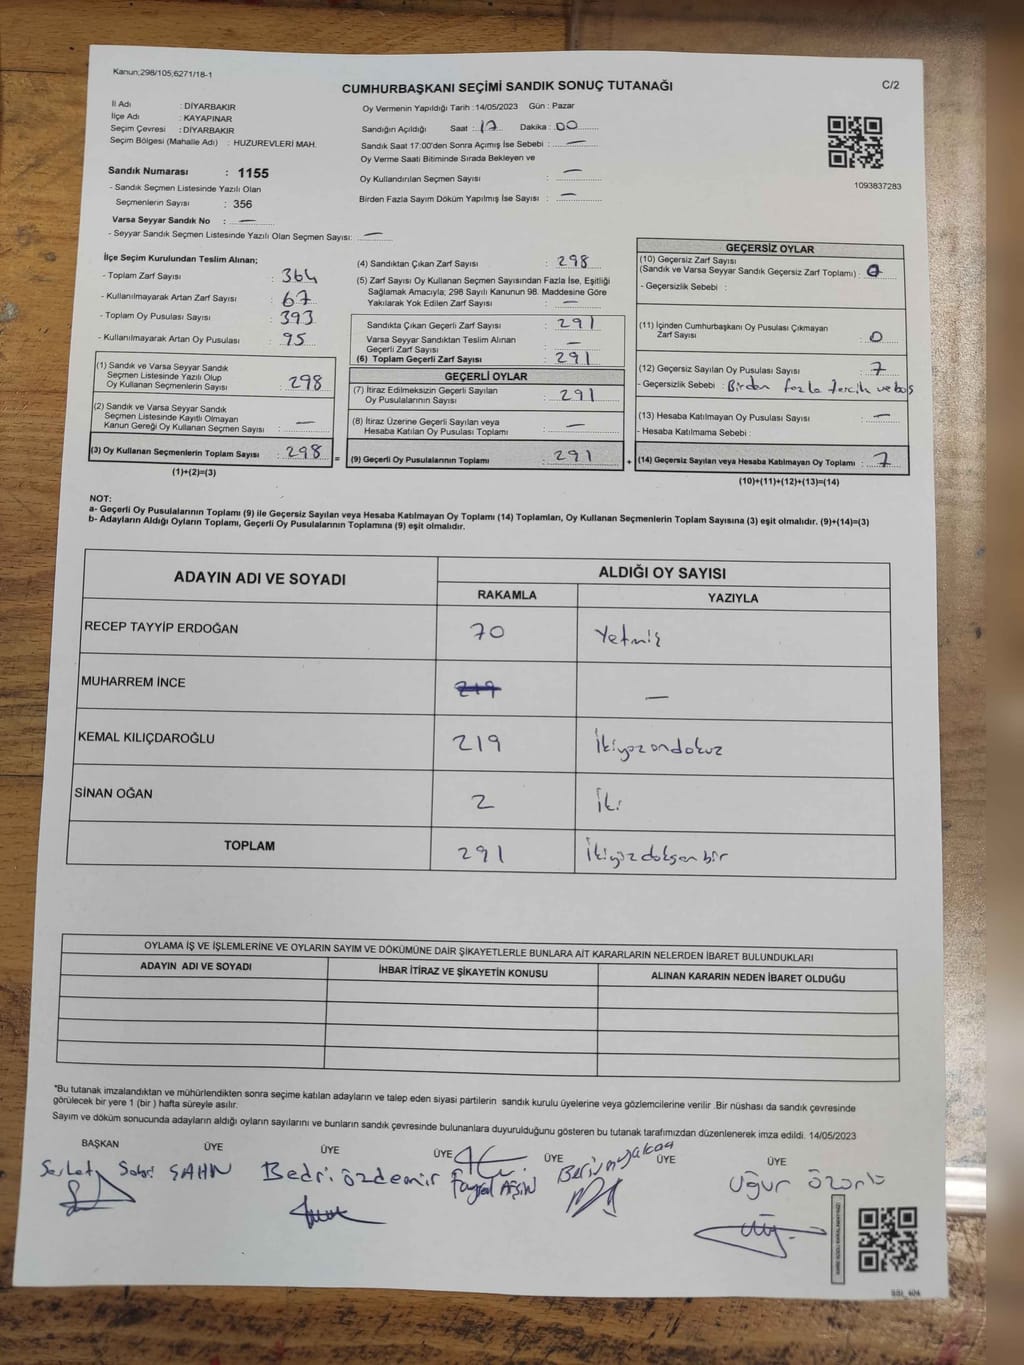 Kanun;298/105;6271/18-1
CUMHURBAŞKANI SEÇİMİ SANDIK SONUÇ TUTANAĞI
C/2
İl Adı : DİYARBAKIR
İlçe Adı : KAYAPINAR
Seçim Çevresi : DİYARBAKIR
Seçim Bölgesi (Mahalle Adı) : HUZUREVLERİ MAH.
Oy Vermenin Yapıldığı Tarih : 14/05/2023 Gün : Pazar
Sandığın Açıldığı Saat : 17 Dakika : 00
Sandık Saat 17:00'den Sonra Açımış İse Sebebi : —
Oy Verme Saati Bitiminde Sırada Bekleyen ve
Oy Kullandırılan Seçmen Sayısı : —
Birden Fazla Sayım Döküm Yapılmış İse Sayısı : —
1093837283
Sandık Numarası : 1155
- Sandık Seçmen Listesinde Yazılı Olan
Seçmenlerin Sayısı : 356
Varsa Seyyar Sandık No : —
- Seyyar Sandık Seçmen Listesinde Yazılı Olan Seçmen Sayısı: —
İlçe Seçim Kurulundan Teslim Alınan;
- Toplam Zarf Sayısı : 364
- Kullanılmayarak Artan Zarf Sayısı : 67
- Toplam Oy Pusulası Sayısı : 393
- Kullanılmayarak Artan Oy Pusulası : 95
(1) Sandık ve Varsa Seyyar Sandık
Seçmen Listesinde Yazılı Olup
Oy Kullanan Seçmenlerin Sayısı : 298
(2) Sandık ve Varsa Seyyar Sandık
Seçmen Listesinde Kayıtlı Olmayan
Kanun Gereği Oy Kullanan Seçmen Sayısı : —
(3) Oy Kullanan Seçmenlerin Toplam Sayısı : 298 =
(1)+(2)=(3)
(4) Sandıktan Çıkan Zarf Sayısı : 298
(5) Zarf Sayısı Oy Kullanan Seçmen Sayısından Fazla İse, Eşitliği
Sağlamak Amacıyla; 298 Sayılı Kanunun 98. Maddesine Göre
Yakılarak Yok Edilen Zarf Sayısı : —
Sandıkta Çıkan Geçerli Zarf Sayısı : 291
Varsa Seyyar Sandıktan Teslim Alınan
Geçerli Zarf Sayısı : —
(6) Toplam Geçerli Zarf Sayısı : 291
GEÇERLİ OYLAR
(7) İtiraz Edilmeksizin Geçerli Sayılan
Oy Pusulalarının Sayısı : 291
(8) İtiraz Üzerine Geçerli Sayılan veya
Hesaba Katılan Oy Pusulası Toplamı : —
(9) Geçerli Oy Pusulalarının Toplamı : 291 +
GEÇERSİZ OYLAR
(10) Geçersiz Zarf Sayısı
(Sandık ve Varsa Seyyar Sandık Geçersiz Zarf Toplamı) : 0
- Geçersizlik Sebebi :
(11) İçinden Cumhurbaşkanı Oy Pusulası Çıkmayan
Zarf Sayısı : 0
(12) Geçersiz Sayılan Oy Pusulası Sayısı : 7
- Geçersizlik Sebebi : Birden fazla tercih ve boş
(13) Hesaba Katılmayan Oy Pusulası Sayısı : —
- Hesaba Katılmama Sebebi :
(14) Geçersiz Sayılan veya Hesaba Katılmayan Oy Toplamı : 7
(10)+(11)+(12)+(13)=(14)
NOT:
a- Geçerli Oy Pusulalarının Toplamı (9) ile Geçersiz Sayılan veya Hesaba Katılmayan Oy Toplamı (14) Toplamları, Oy Kullanan Seçmenlerin Toplam Sayısına (3) eşit olmalıdır. (9)+(14)=(3)
b- Adayların Aldığı Oyların Toplamı, Geçerli Oy Pusulalarının Toplamına (9) eşit olmalıdır.
ADAYIN ADI VE SOYADI
ALDIĞI OY SAYISI
RAKAMLA YAZIYLA
RECEP TAYYİP ERDOĞAN 70 Yetmiş
MUHARREM İNCE 219 —
KEMAL KILIÇDAROĞLU 219 İkiyüzondokuz
SİNAN OĞAN 2 İki
TOPLAM 291 İkiyüzdoksanbir
OYLAMA İŞ VE İŞLEMLERİNE VE OYLARIN SAYIM VE DÖKÜMÜNE DAİR ŞİKAYETLERLE BUNLARA AİT KARARLARIN NELERDEN İBARET BULUNDUKLARI
ADAYIN ADI VE SOYADI İHBAR İTİRAZ VE ŞİKAYETİN KONUSU ALINAN KARARIN NEDEN İBARET OLDUĞU
*Bu tutanak imzalandıktan ve mühürlendikten sonra seçime katılan adayların ve talep eden siyasi partilerin sandık kurulu üyelerine veya gözlemcilerine verilir .Bir nüshası da sandık çevresinde
görülecek bir yere 1 (bir ) hafta süreyle asılır.
Sayım ve döküm sonucunda adayların aldığı oyların sayılarını ve bunların sandık çevresinde bulunanlara duyurulduğunu gösteren bu tutanak tarafımızdan düzenlenerek imza edildi. 14/05/2023
BAŞKAN ÜYE ÜYE ÜYE ÜYE ÜYE ÜYE
Sabri ŞAHN Bedri özdemir AFŞİN Uğur